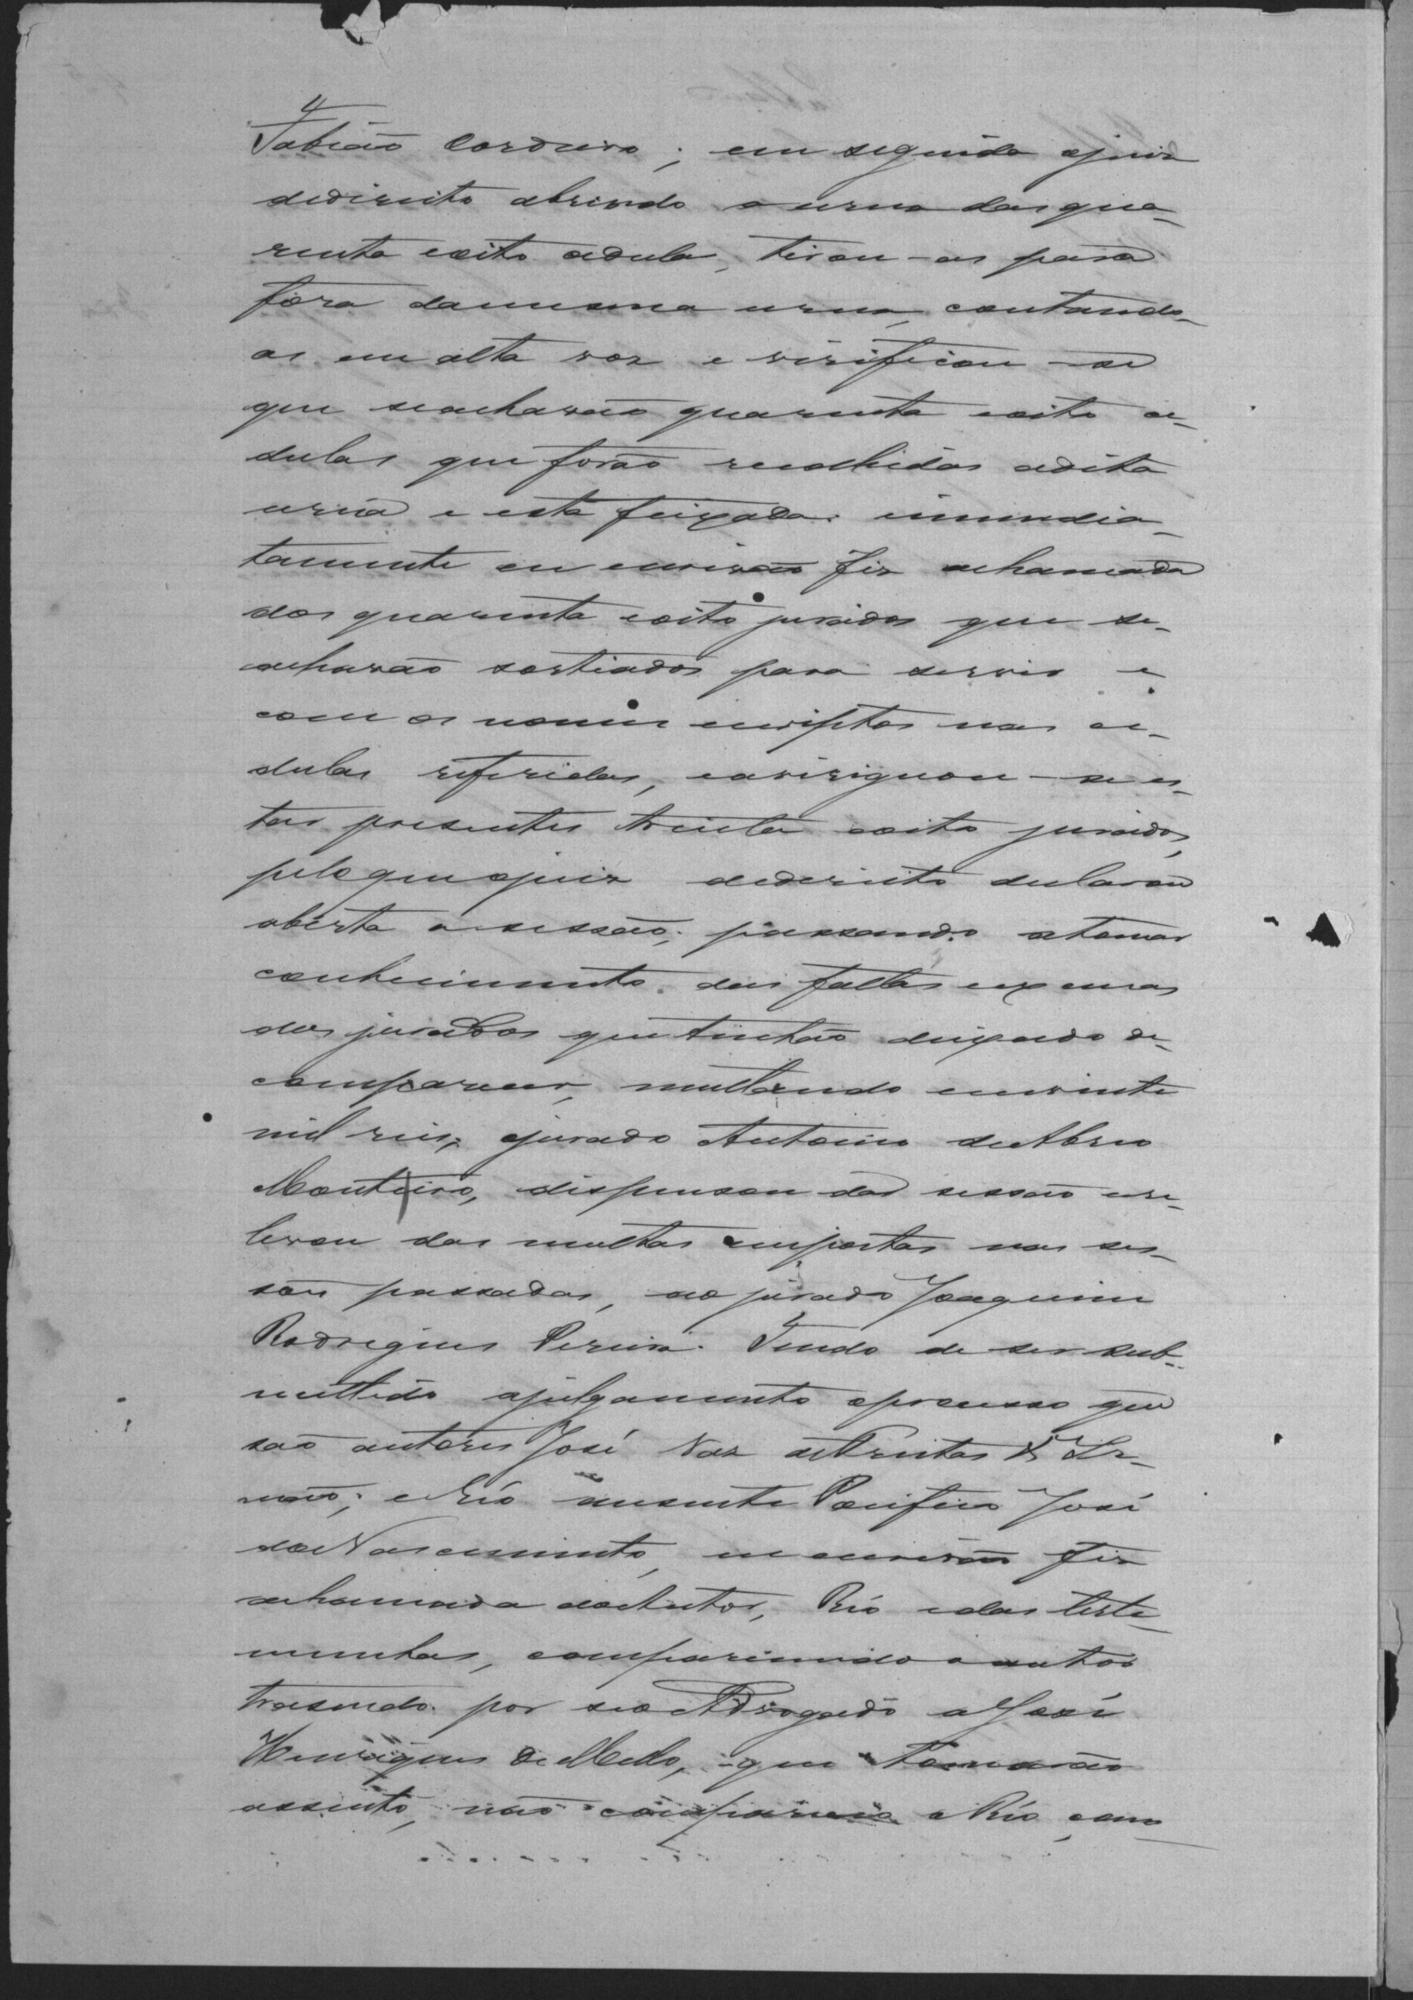 Fabião Cordeiro; em seguida ojuis
dedireito abrindo a urna das qua-
renta eoito cedula, tirou-as para
fora damesma urna, contando-
as em alta voz e virificou-se
que seacharão quarenta eoito ce-
dulas que forão recolhidas adita
urna e esta feixada. immedia-
tamente eu escrivão fiz achamada
dos quarenta eoito jurados que se-
acharão sortiados para servir e
com os nomes escriptos nas ce-
dulas referidas, eavirignou-se es-
tar presentes trinta eoito jurados,
pelo que ojuiz dedereito declarou
aberta a sessão; passando atomar
conhecimento das faltas eexcusas
dos jurados que tinhão deixado de-
comparecer, multando emvinte
mil reis, ojurado Antonio de Abreo
Monteiro, dispensou da sessão ere-
levou das multas impostas nas ses-
sões passadas, ao jurado Joaquim
Rodrigues Pereira. Tendo de ser sub-
mettido ajulgamento oprocesso que
são autores José Vaz de Freitas & Ir-
mão; e Réo ausente Pacifico José
do Nascimento, eu escrivão fiz
achamada do Autor, Réo edas teste-
munhas, comparecendo o autor
trasendo por seo Advogado a José
Henriques de Mello, que tomarão
assento, não compareceo o Réo, com